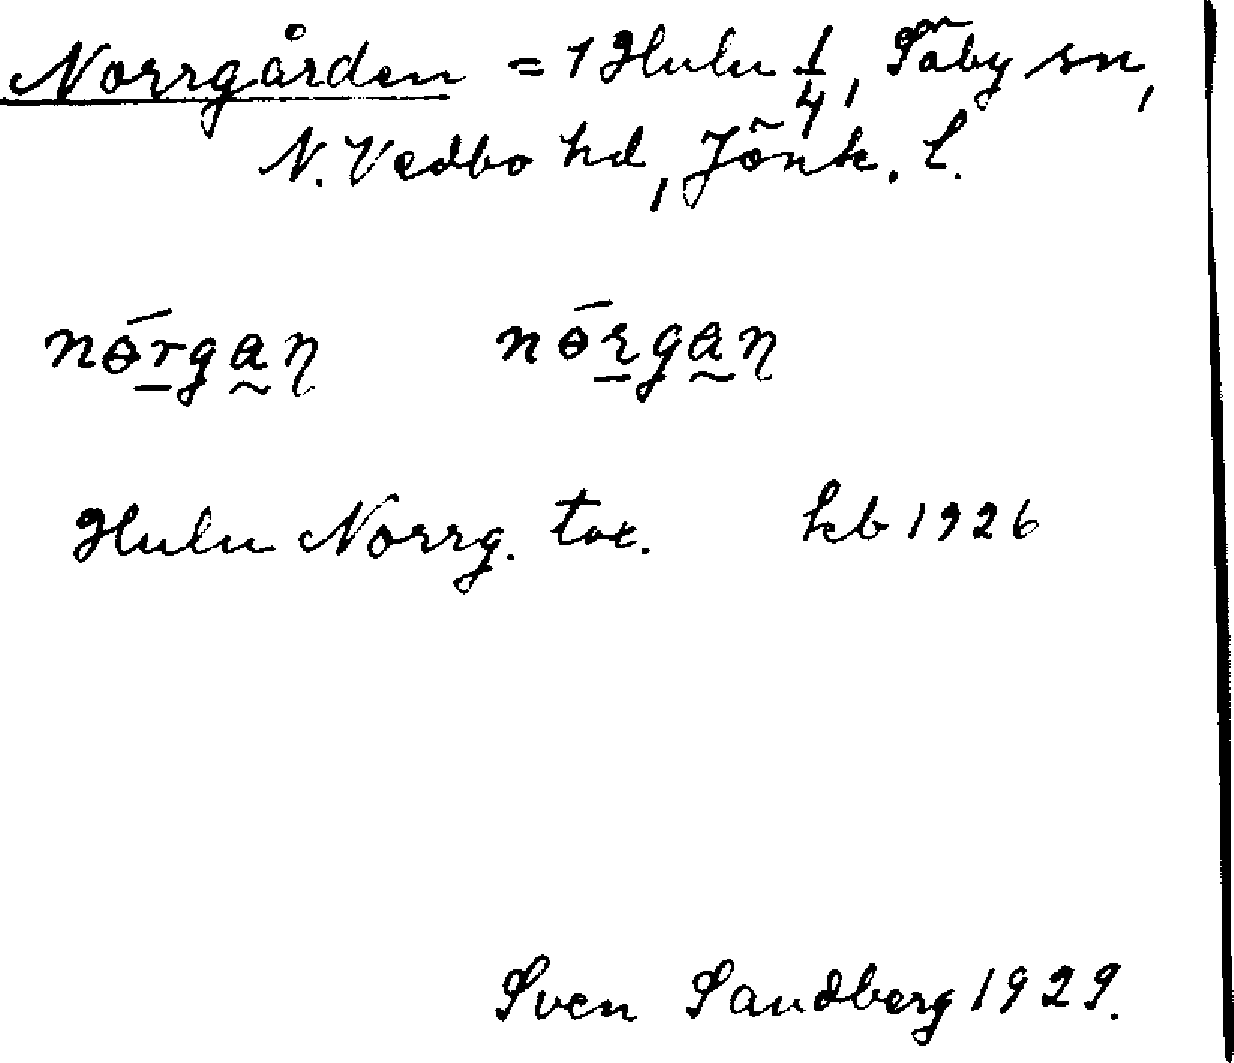 Norrgården = 1 Hulu 1/4, Säby sn,
N. Vedbo hd, Jönk. l.
nɵ́r̠ga̰ɳ nɵ́ɽ̠ga̰ɳ
Hulu Norrg. kb 1926
Sven Sandberg 1929.